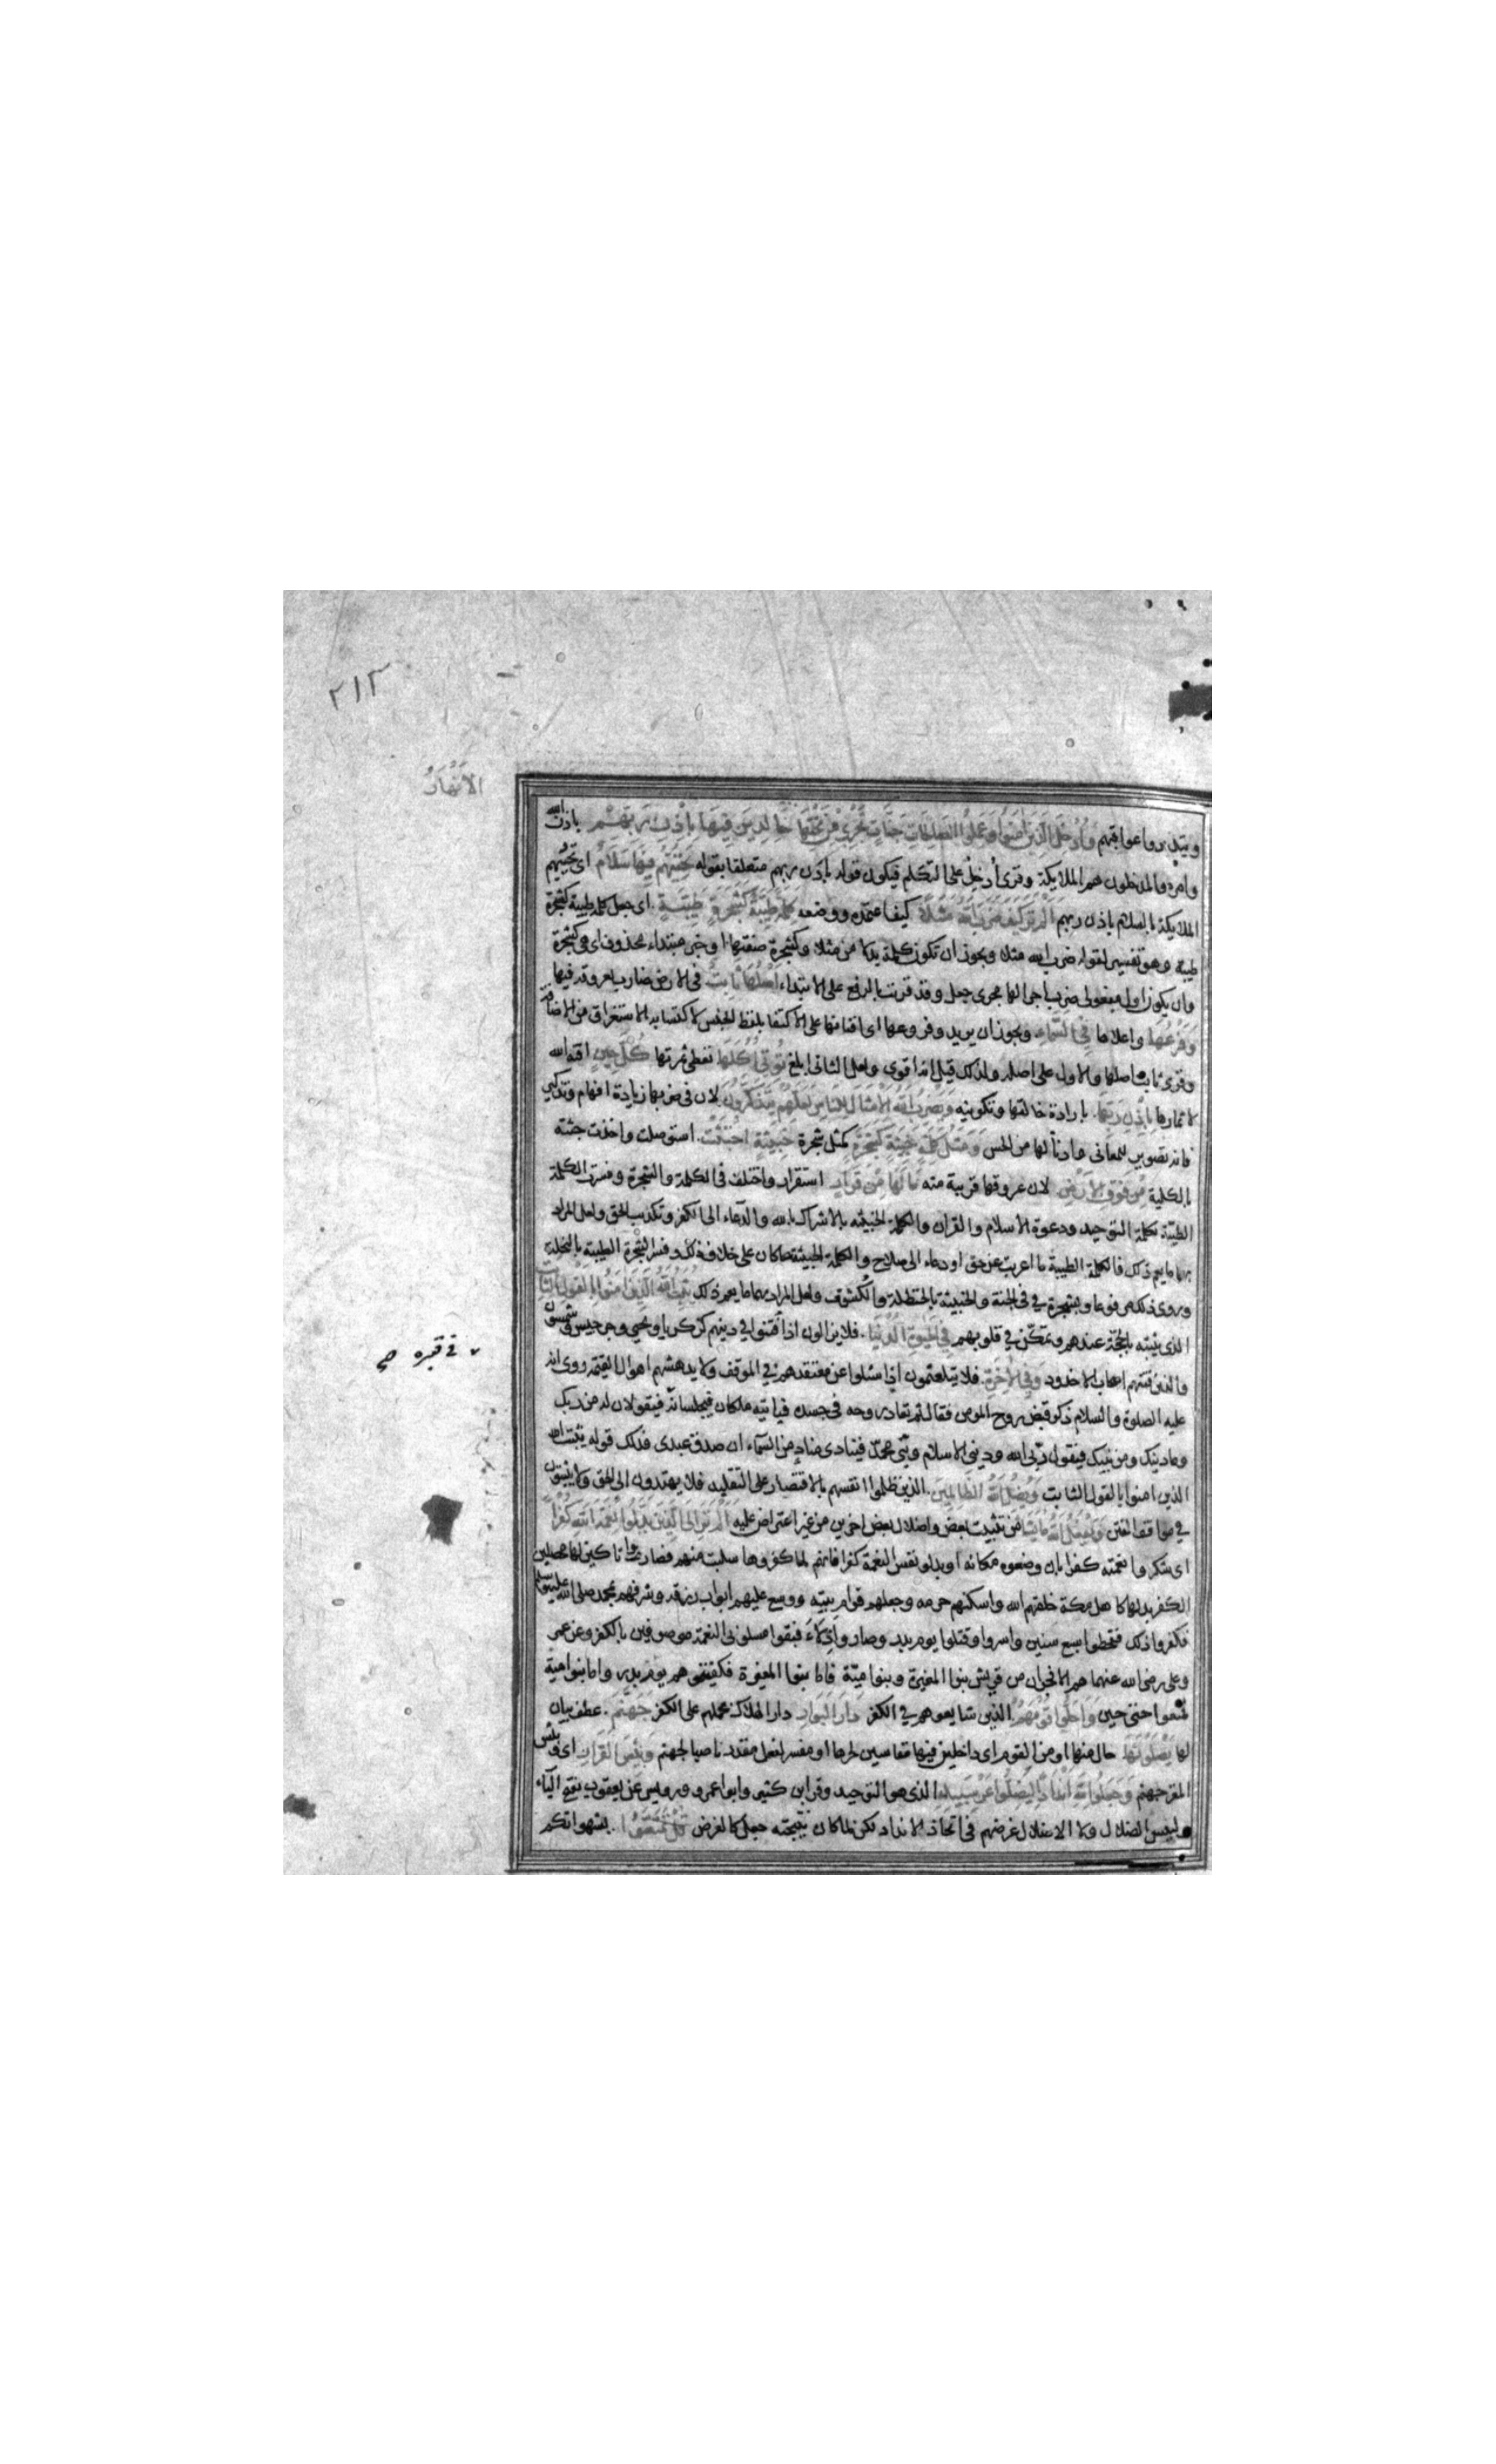 ٢١٣
الانهار
ويتدبروا عواقبهم وادخل الذين امنوا وعملوا الصالحات جنات تجري من تحتها خالدين فيها باذن ربهم باذن الله
وامره والمدخلون هم الملايكة وقرئ أدخل على التكلم فيكون قوله باذن ربهم متعلقا بقوله تحيتهم فيها سلام اى تحييهم
الملايكة بالسلام باذن ربهم الم تر كيف ضرب الله مثلا كيف اعتمده ووضعه كلمة طيبة كشجرة طيبة اى جعل كلمة طيبة كشجرة
طيبة وهو تفسير لقوله ضرب الله مثلا ويجوز ان تكون كلمة بدلا من مثلا وكشجرة صفتها او خبر مبتداء محذوف اى هي كشجرة
وان يكون اول مفعولى ضرب اجرا لها مجرى جعل وقد قرئت بالرفع على الابتداء اصلها ثابت فى الارض ضارب بعروقه فيها
وفرعها واعلاها في السماء ويجوز ان يريد وفروعها اى افنانها على الاكتفا بلفظ الجنس لاكتسابه الاستغراق من الاضافة
وقرئ ثابت اصلها والاول على اصله ولذلك قيل انه اقوى ولعل الثانى ابلغ تؤتي اكلها تعطى ثمرتها كل حين اقته الله
لاثمارها باذن ربها بارادة خالقها وتكوينه ويضرب الله الامثال للناس لعلهم يتذكرون لان فى ضربها زيادة افهام وتذكير
فانه تصوير للمعانى وادناء لها من الحس ومثل كلمة خبيثة كشجرة كمثل شجرة خبيثة اجتثت استوصلت واخذت جثته
بالكلية من فوق الارض لان عروقها قريبة منه ما لها من قرار استقرار واختلف فى الكلمة والشجرة وفسرت الكلمة
الطيبة بكلمة التوحيد ودعوة الاسلام والقران والكلمة الخبيثه بالاشراك بالله والدعاء الى الكفر وتكذيب الحق ولعل المراد
بهما ما يعم ذلك فالكلمة الطيبة ما اعرب عن حق او دعاء الى صلاح والكلمة الخبيثة ما كان على خلاف ذلك وفسر الشجرة الطيبة بالنخلة
وروى ذلك مرفوعا وبشجرة في الجنة والخبيثة بالحنظلة والكشوث ولعل المراد بهما ما يعم ذلك يثبت الله الذين امنوا بالقول الثابت
الذى يثبت بالحجة عندهم وتمكن في قلوبهم في الحيوة الدنيا فلا يزالون اذا افتنوا في دينهم كزكريا ويحيى وجرجيس وشمسون
والذين فتنهم اصحاب الاخدود وفي الاخرة فلا يتلعثمون اذا سئلوا عن معتقدهم في الموقف ولا يدهشهم اهوال القيمة روى انه
في قبره صح
عليه الصلوة والسلام ذكر قبض روح المومن فقال ثم تعاد روحه فى جسده فياتيه ملكان فيجلسانه فيقولان له من ربك
وما دينك ومن نبيك فيقول ربى الله وديني الاسلام ونبى محمد فينادى مناد من السماء ان صدق عبدى فذلك قوله يثبت الله
الذين امنوا بالقول الثابت ويضل الله الظالمين الذين ظلموا انفسهم بالاقتصار على التقليد فلا يهتدون الى الحق ولا يثبتون
في مواقف الفتن ويفعل الله ما يشا من تثبيت بعض واضلال بعض اخرين من غير اعتراض عليه الم تر الى الذين بدلوا نعمة الله كفرا
اى شكروا نعمته كفرا بان وضعوه مكانه او بدلو نفس النعمة كفرا فانهم لما كفروها سلبت منهم فصاروا تاركين لها محصلين
الكفر بدلها كاهل مكة خلقهم الله واسكنهم حرمه وجعلهم قوام بيته ووسع عليهم ابواب رزقه وشرفهم بمحمد صلى الله عليه وسلم
فكفروا ذلك فقحطوا سبع سنين واسروا وقتلوا يوم بدر وصاروا اذلاء فبقوا مسلوبى النعمة موصوفين بالكفر وعن عمر
وعلى رضى الله عنهما هم الافجران من قريش بنوا المغيرة وبنوا امية فاما بنوا المغيرة فكفيتموهم يوم بدر واما بنوا امية
فمتعوا حتى حين واحلوا قومهم الذين شايعوهم في الكفر دار البوار دار الهلاك بحملهم على الكفر جهنم عطف بيان
لها يصلونها حال منها او من القوم اى داخلين فيها مقاسين لحرها او مفسر لفعل مقدر ناصبا لجهنم وبئس القرار اى وبئس
المقر جهنم وجعلوا لله اندادا ليضلوا عن سبيله الذى هو التوحيد وقرا ابن كثير وابوا عمرو ورويس عن يعقوب بفتح الياء
وليس الضلال ولا الاضلال غرضهم في اتخاذ الانداد لكن لما كان نتيجته جعل كالغرض قل تمتعوا بشهواتكم